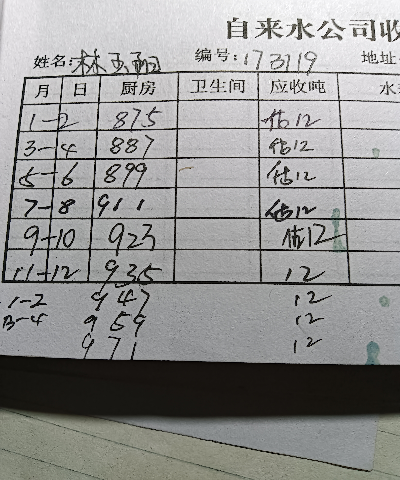 自来水公司收
姓名:林玉阳 编号:173719 地址:
月 日 厨房 卫生间 应收吨 水
1-2 875 估12
3-4 887 估12
5-6 899 估12
7-8 911 估12
9-10 923 估12
11-12 935 12
1-2 947 12
3-4 959 12
971 12